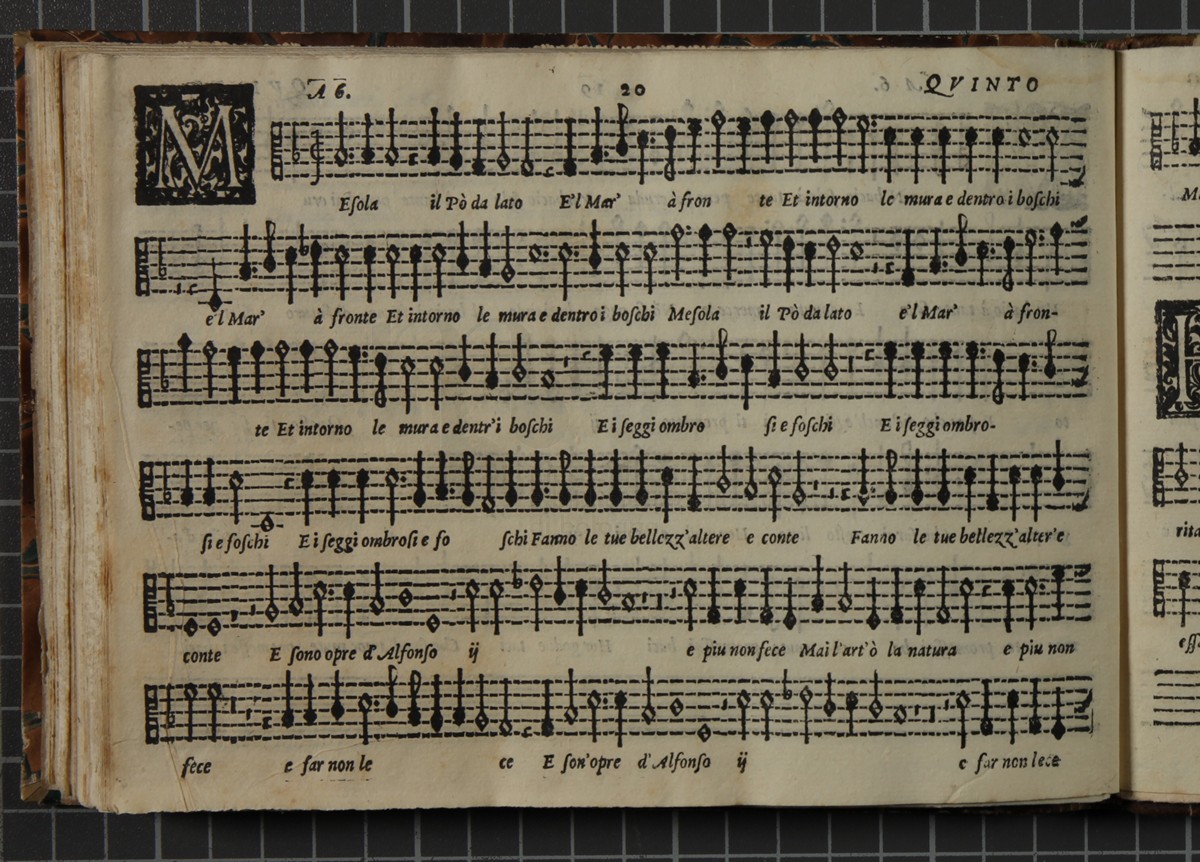 A 6. 20 QVINTO
MEſola il Pò da lato E'l Mar' à fron te Et intorno le mura e dentro i boſchi
e'l Mar' à fronte Et intorno le mura e dentro i boſchi Meſola il Pò da lato e'l Mar' à fron-
te Et intorno le mura e dentr'i boſchi E i ſeggi ombro ſi e foſchi E i ſeggi ombro-
ſi e foſchi E i ſeggi ombroſi e fo ſchi Fanno le tue bellezz'altere e conte Fanno le tue bellezz'alter'e
conte E ſono opre d'Alfonſo ij e piu non fece Mai l'art'ò la natura e piu non
fece e far non le ce E ſon'opre d'Alfonſo ij e far non lece